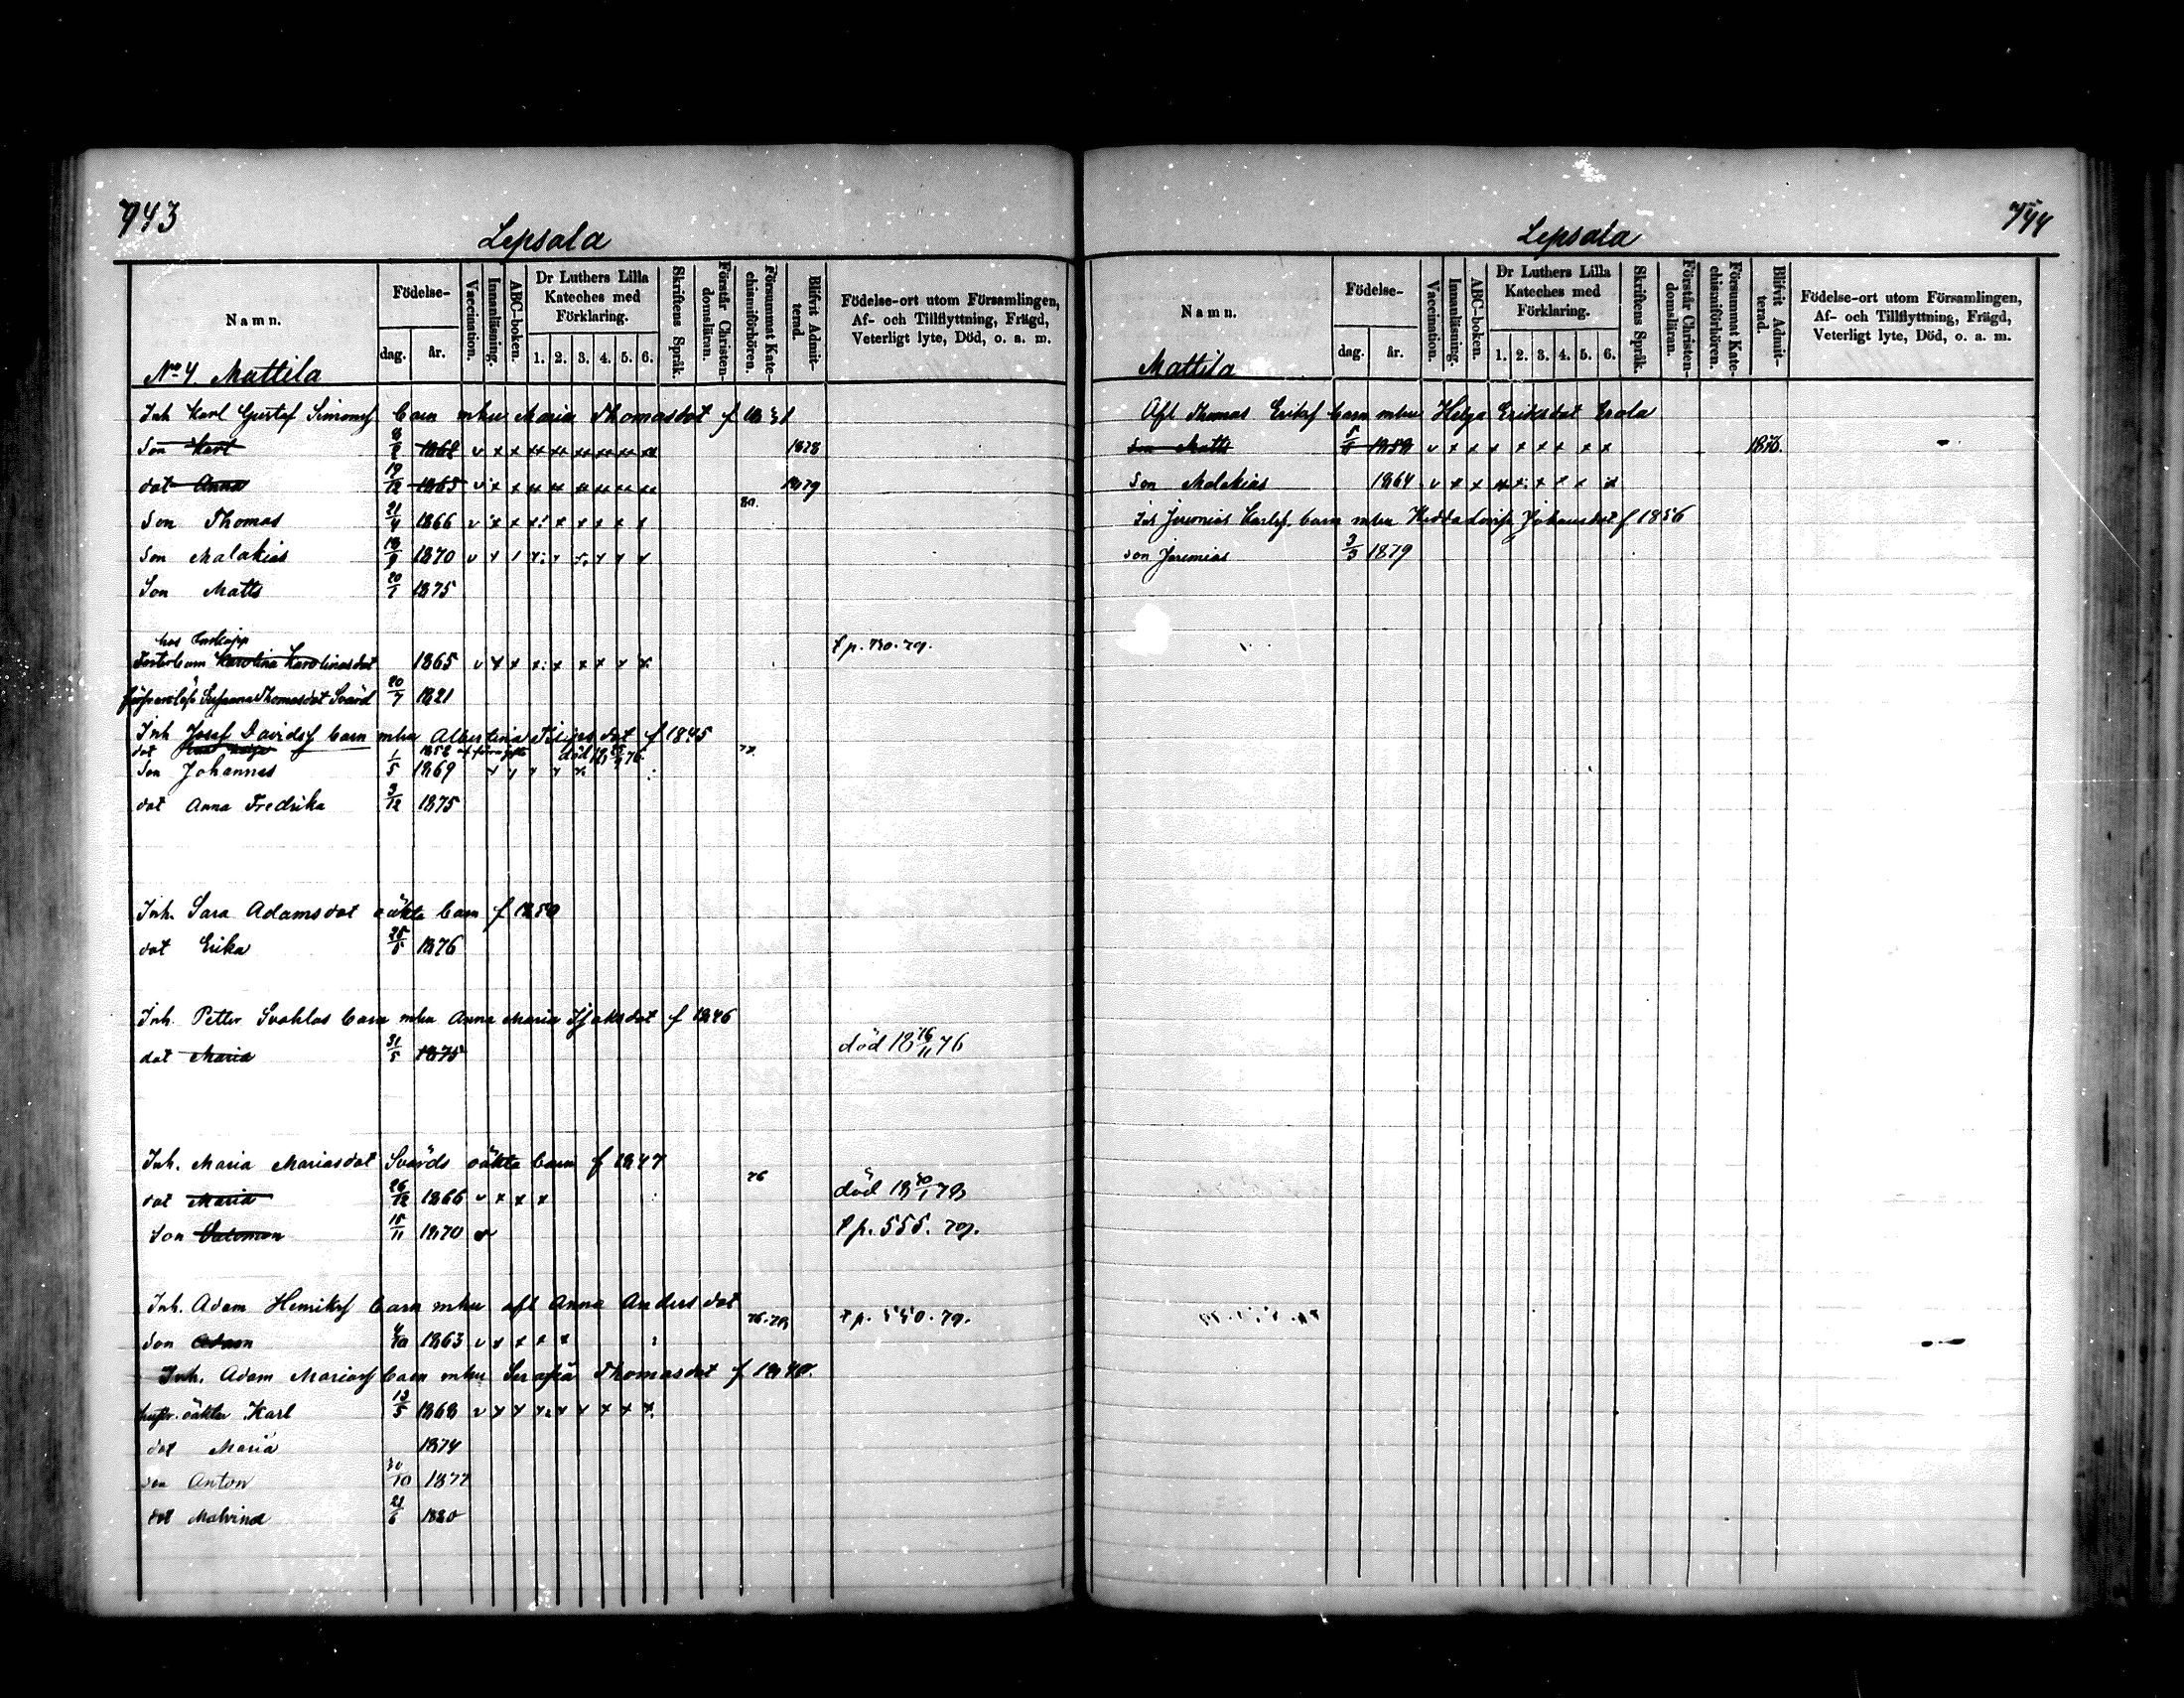 743
Lepsala
Namn.
Födelse-
dag.
år.
Vaccination.
Innanläsning.
ABC-boken.
Dr Luthers Lilla
Kateches med
Förklaring.
1. 2. 3. 4. 5. 6.
Skriftens Språk.
Förstår Christen-
domsläran.
Försummat Kate-
chismiförhören.
Blifvit Admit-
terad.
Födelse-ort utom Församlingen,
Af- och Tillflyttning, Frägd,
Veterligt lyte, Död, o. a. m.
No 4 Mattila
Inh Karl Gustaf Simonsf barn m hu Maria Thomasdot f 1831
Son Karl 1862 v x x 1878
dot Anna 19/12 1865 v x x 1879
80.
Son Thomas 21/4 1866 v x x x x x x x x
Son Malakias 18/9 1870 v
Son Matts 20/1 1875
hos
Fosterbarn Karolina Karolinasdot 1865 v x x x x x x x x t p. 730. 79.
Susanna Thomasdot Svärd 20/7 1821
Inh Josef Davidsf barn m hu Albertina dot f 1845
dot 1852 död 76.
77.
Son Johannes 1/5 1869
dot Anna Fredrika 3/12 1875
Inh. Sara Adamsdot oäkta barn f 1850
dot Erika 25/5 1876
Inh. Petter barn m hu Anna Maria Isaksdot f 1846
dot Maria 31/5 1875 död 18 16/11 76
Inh. Maria Mariasdot Svärds oäkta barn f 1847
76
dot Maria 26/12 1866 v x x x död 18 30/1 78
Son Salomon 15/11 1870 v t p. 555. 79.
Inh. Adam Henriksf barn m hu afl Anna Andersdot
76.78
Son Adam 4/10 1863 v x x x x t p. 550. 79.
Inh. Adam Mariasf barn m hu Serafia Thomasdot f 1840.
hustr. oäkta Karl 13/5 1868 v x x x x x x x x
dot Maria 1874
son Anton 30/10 1877
dot Malvina 21/6 1880
744
Lepsala
Namn.
Födelse-
dag.
år.
Vaccination.
Innanläsning.
ABC-boken.
Dr Luthers Lilla
Kateches med
Förklaring.
1. 2. 3. 4. 5. 6.
Skriftens Språk.
Förstår Christen-
domsläran.
Försummat Kate-
chismiförhören.
Blifvit Admit-
terad.
Födelse-ort utom Församlingen,
Af- och Tillflyttning, Frägd,
Veterligt lyte, Död, o. a. m.
Mattila
Afl Thomas Eriksf barn m hu Helga Eriksdot Erola
Son Matts 1858 v x x x x x x x x 1876.
Son Malakias 1864 v x x x x x x x x
Inh Jeremias Karlsf. barn m hu Hedda Johansdot f 1856
son Jeremias 3/3 1879